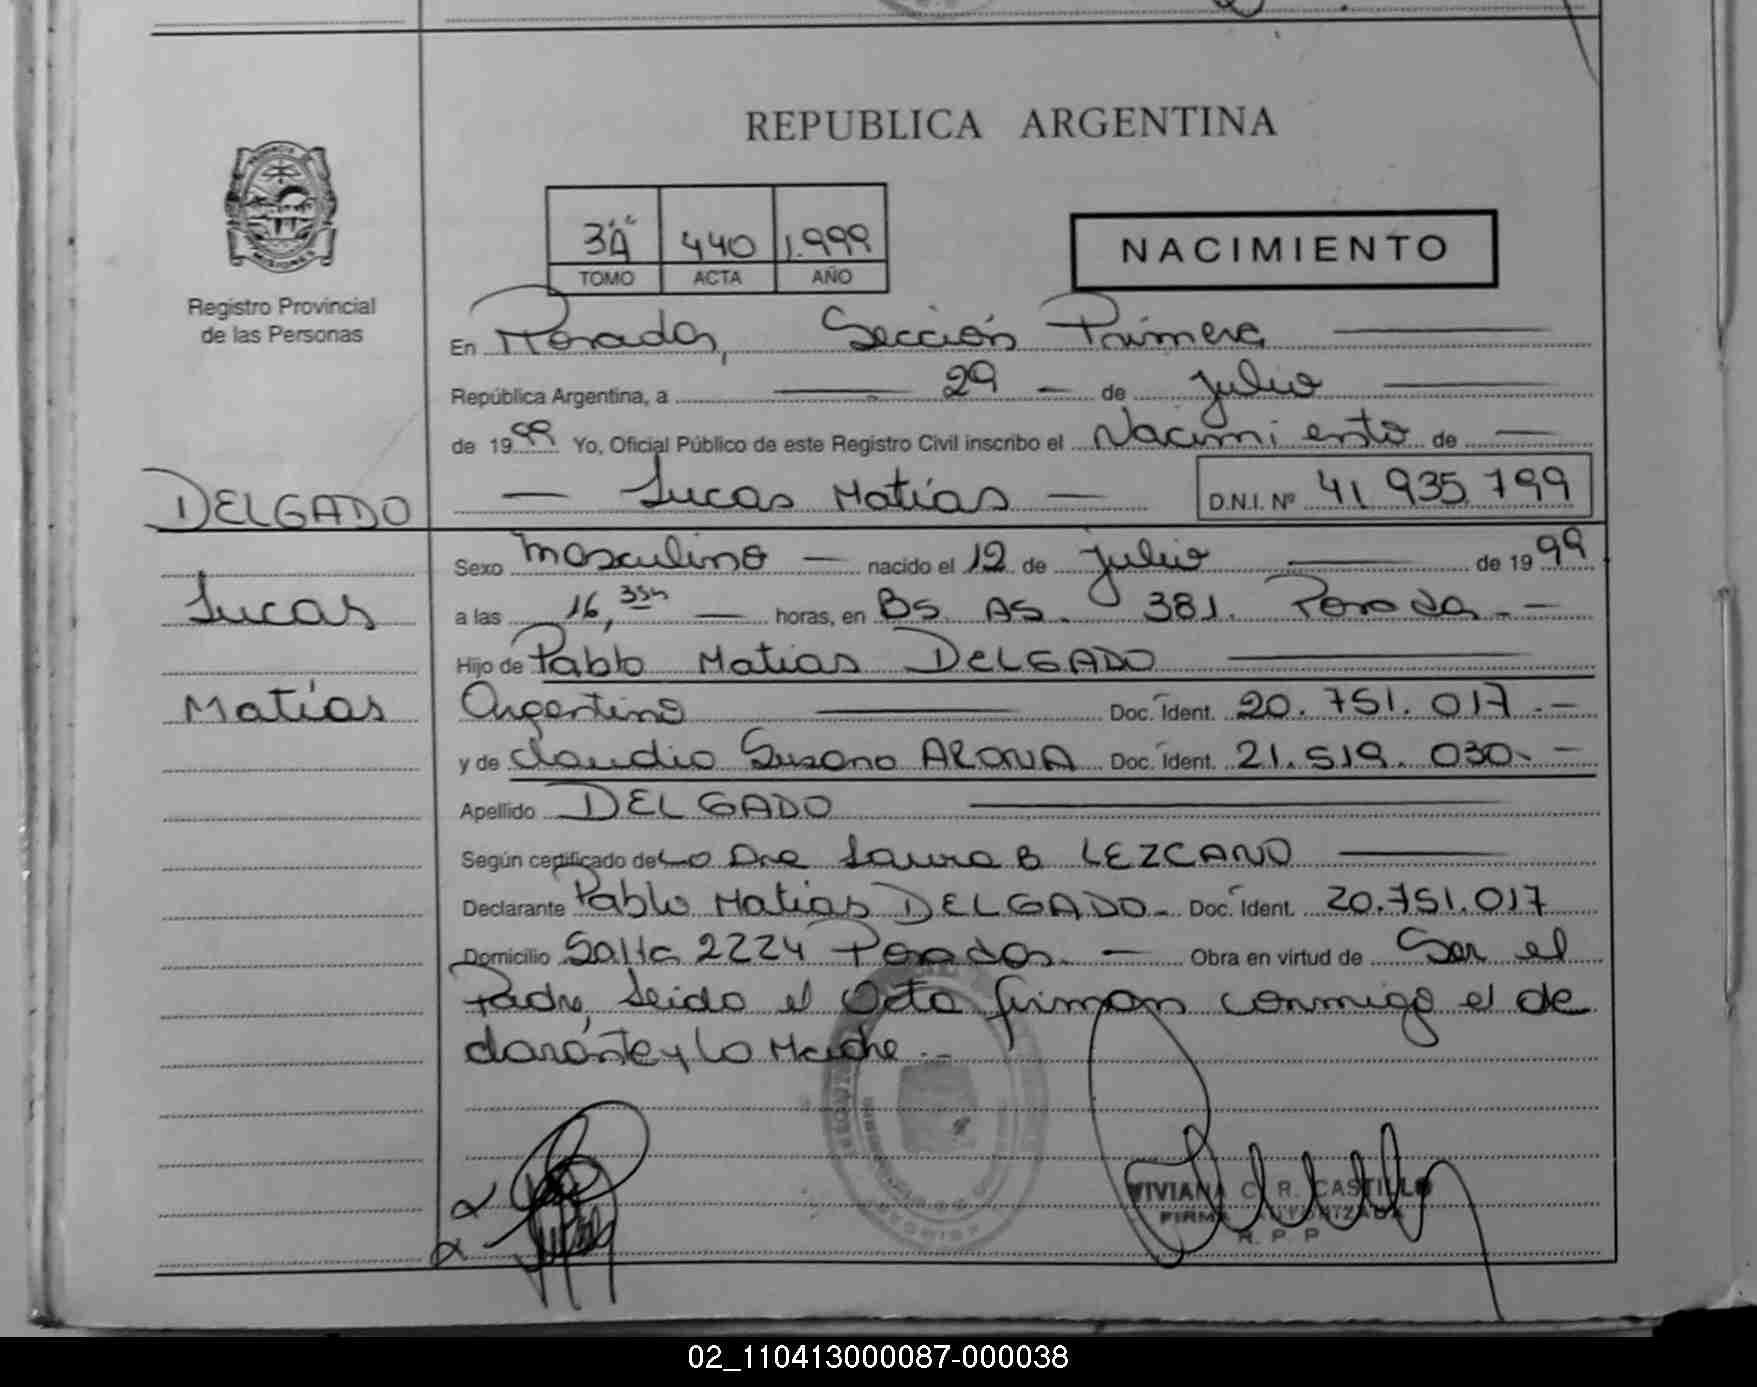 REPUBLICA ARGENTINA
PROVINCIA
MISIONES
Registro Provincial
de las Personas
3"A" 440 1.999
TOMO ACTA AÑO
NACIMIENTO
En Posadas, Sección Primera
República Argentina, a 29 de julio
de 1999 Yo, Oficial Público de este Registro Civil inscribo el Nacimiento de
Lucas Matías D.N.I. Nº 41 935 799
DELGADO
Lucas
Matías
Sexo masculino nacido el 12 de julio de 1999
a las 16,35h horas, en Bs. As. 381. Posadas.-
Hijo de Pablo Matias DELGADO
Argentino Doc. Ident. 20.751.017.-
y de Claudia Susana Doc. Ident. 21.519.030.-
Apellido DELGADO
Según certificado de La Dra Laura B LEZCANO
Declarante Pablo Matias DELGADO.- Doc. Ident. 20.751.017
Domicilio Salta 2224 Posadas.- Obra en virtud de Ser el
Padre, Leido el Acta firman conmigo el de
clarante y la Madre.-
VIVIANA C. R. CASTILLO
FIRMA AUTORIZADA
R. P. P
02_110413000087-000038